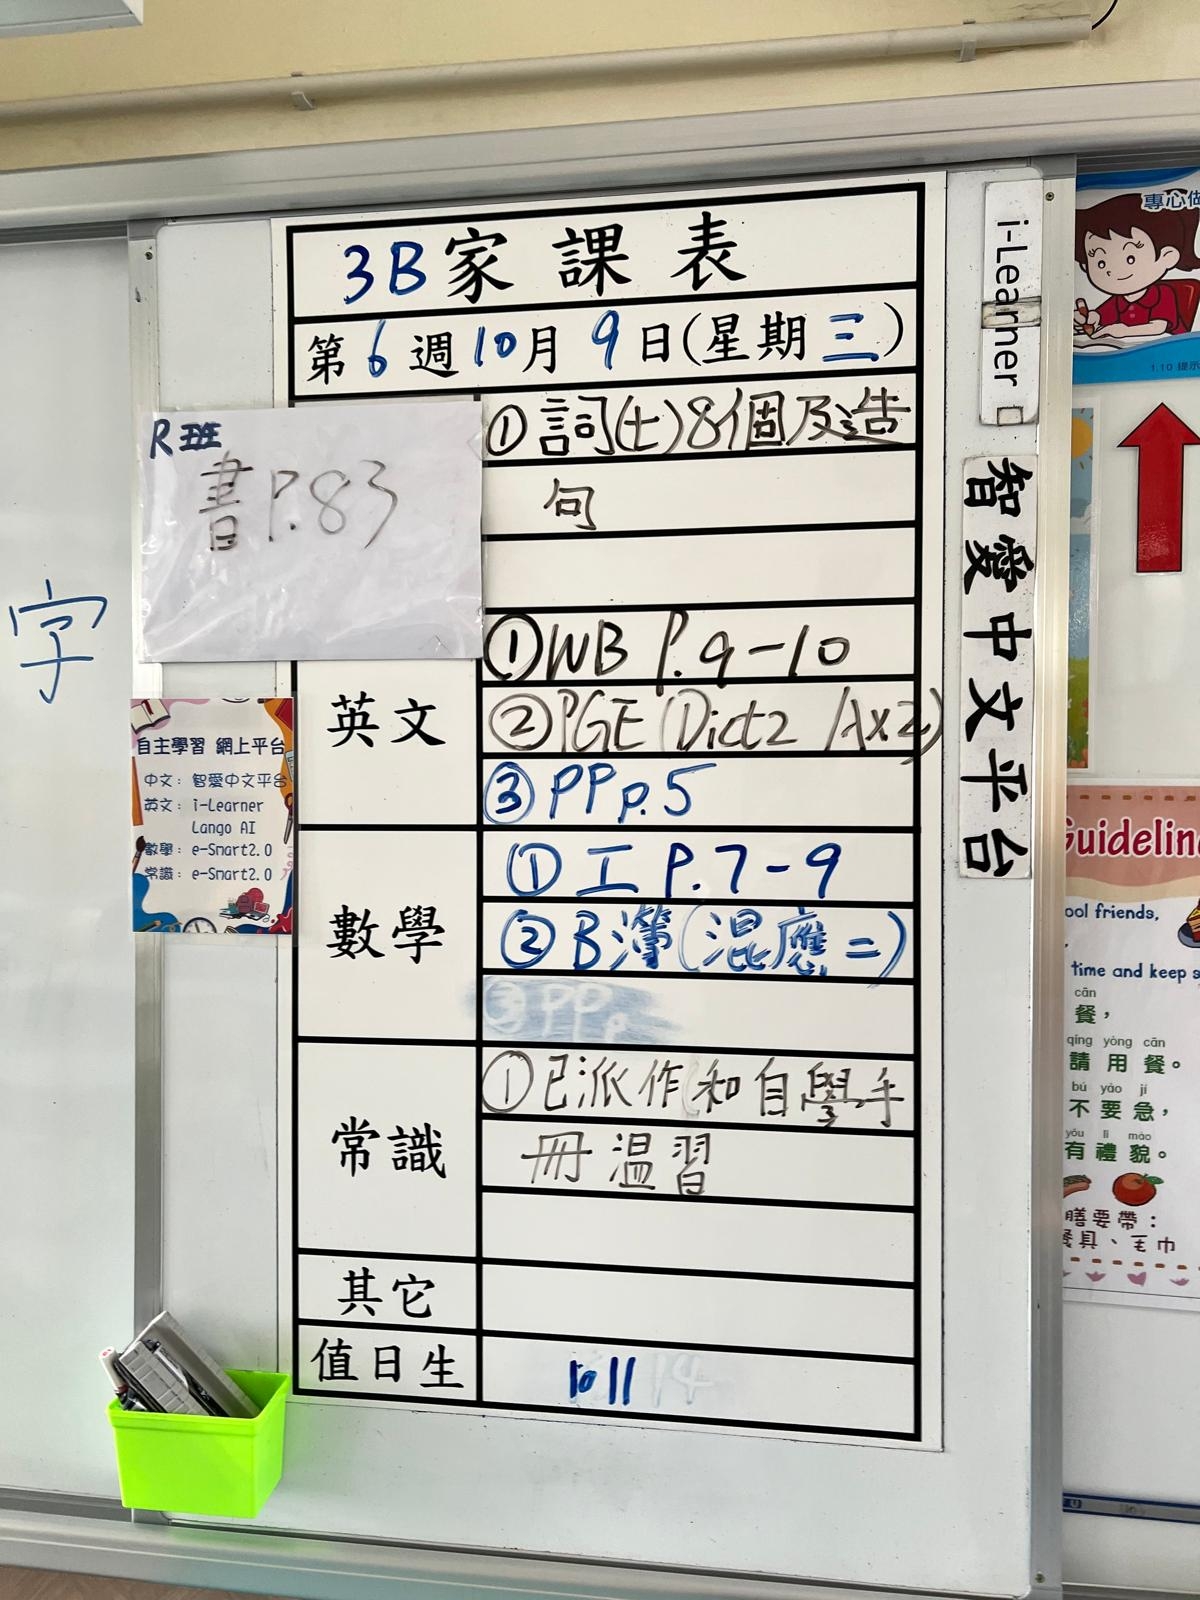 3B家課表
第6週10月9日(星期三)
R班
書P.83
①詞(七)8個及造
句
英文
①WB P.9-10
②PGE (Dict2 /Ax2)
③PP p.5
數學
①工 P.7-9
②B簿(混應二)
③PPp
常識
①已派作和自學手
冊溫習
其它
值日生
10 11 14
字
自主學習 網上平台
中文：智愛中文平台
英文：i-Learner
Lango AI
數學：e-Smart2.0
常識：e-Smart2.0
i-Learner
智愛中文平台
專心做
1.10 提示
Guidelin
ool friends,
time and keep s
cān
餐，
qǐng yòng cān
請用餐。
bú yào jí
不要急，
yǒu lǐ mào
有禮貌。
膳要帶：
餐具、毛巾